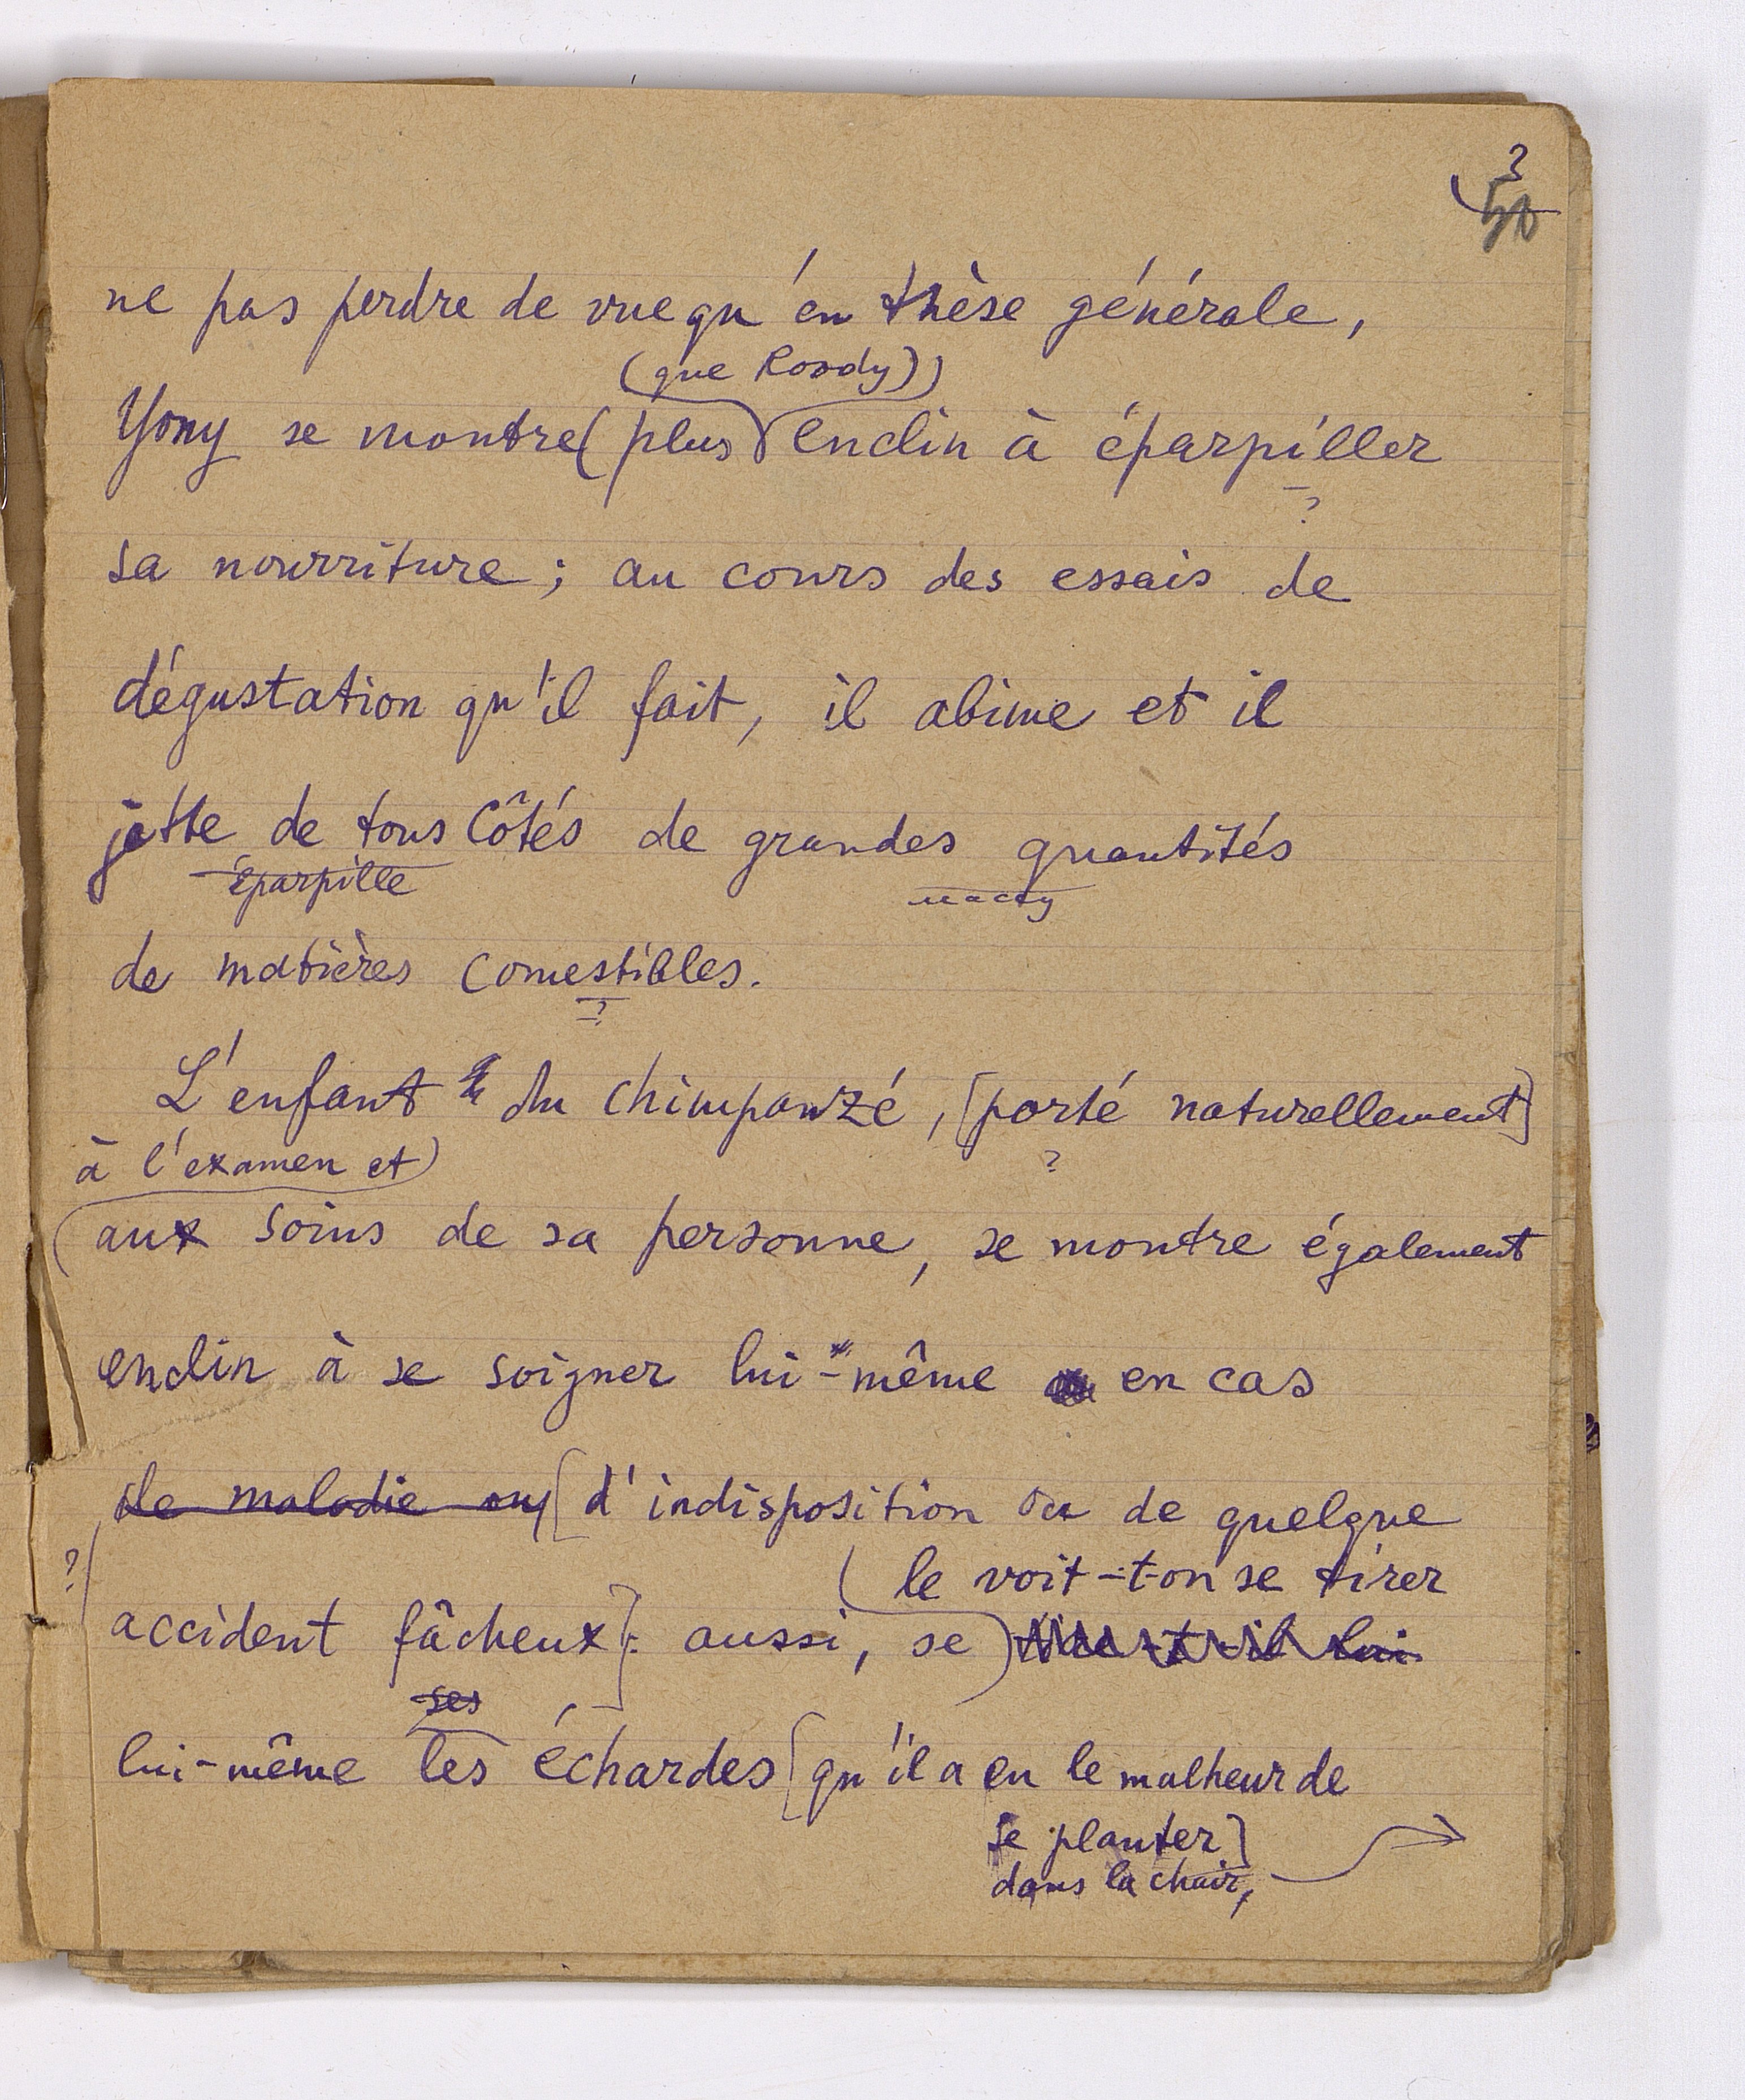 3
ne pas perdre de vue qu'en thèse générale,
(que Roody))
Yony se montre (plus) enclin à éparpiller
?
sa nourriture ; au cours des essais de
dégustation qu'il fait, il abime et il
jette de tous côtés de grandes quantités
éparpille
de matières comestibles.
?
L'enfant du chimpanzé, [porté naturellement]
à l'examen et) ?
(aux soins de sa personne, se montre également
enclin à se soigner lui-même en cas
de maladie ou [d'indisposition ou de quelque
? (le voit-t-on se tirer
accident fâcheux]: aussi, se)
ses
lui-même les échardes [qu'il a eu le malheur de
se planter]
dans la chair,